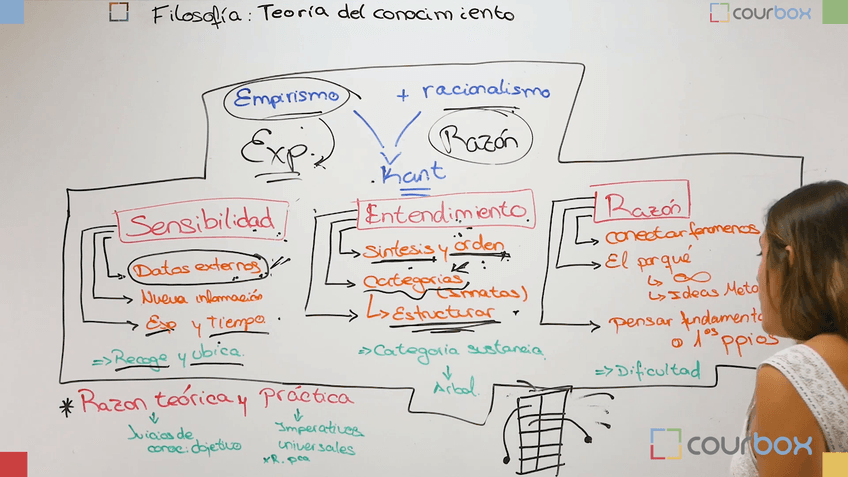 Filosofía: Teoría del conocimiento
courbox
Empirismo + racionalismo
Exp. Razón
Kant
Sensibilidad
Datos externos
Nueva información
Esp y Tiempo
=> Recoge y Ubica.
Entendimiento
Síntesis y orden
Categorías
(Innatas)
Estructurar
=> Categoría sustancia
Árbol
Razón
conectar fenómenos
El porqué
∞
Ideas Meta
pensar fundamento
o 1ºs ppios
=> Dificultad
* Razón teórica y práctica
Juicios de
conoc. objetivo
Imperativos
universales
courbox